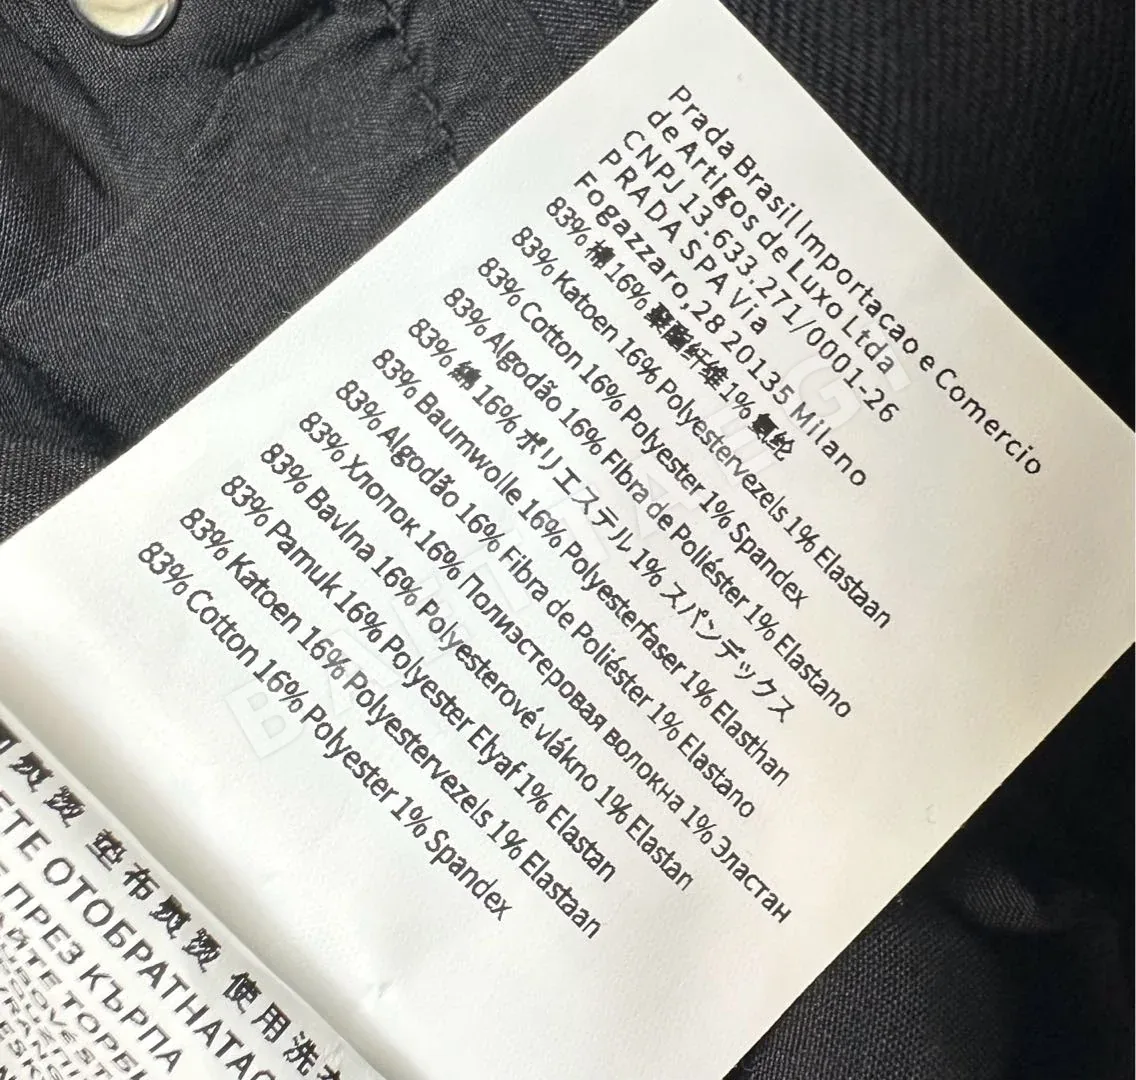 Prada Brasil Importacao e Comercio
de Artigos de Luxo Ltda
CNPJ 13.633.271/0001-26
PRADA SPA Via
Fogazzaro,28 20135 Milano
83% 棉 16% 聚酯纤维 1% 氨纶
83% Katoen 16% Polyestervezels 1% Elastaan
83% Cotton 16% Polyester 1% Spandex
83% Algodão 16% Fibra de Poliéster 1% Elastano
83% 綿 16% ポリエステル 1% スパンデックス
83% Baumwolle 16% Polyesterfaser 1% Elasthan
83% Algodão 16% Fibra de Poliéster 1% Elastano
83% Хлопок 16% Полиэстеровая волокна 1% Эластан
83% Bavlna 16% Polyesterové vlákno 1% Elastan
83% Pamuk 16% Polyester Elyaf 1% Elastan
83% Katoen 16% Polyestervezels 1% Elastaan
83% Cotton 16% Polyester 1% Spandex
熨烫 垫布熨烫 使用洗
ЕТЕ ОТОБРАТНАТА
ПРЕЗ КЪРПА